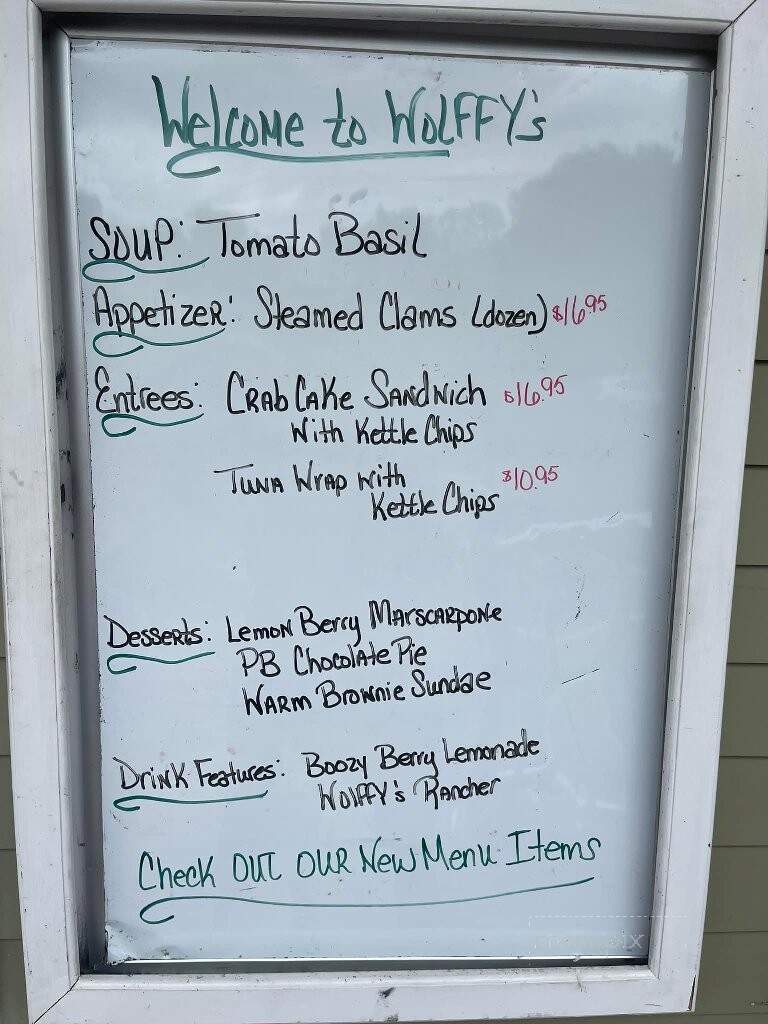 Welcome to Wolffy's
Soup: Tomato Basil
Appetizer: Steamed Clams (dozen) $16.95
Entrees: Crab Cake Sandwich $16.95
With Kettle Chips
Tuna Wrap with $10.95
Kettle Chips
Desserts: Lemon Berry Marscarpone
PB Chocolate Pie
Warm Brownie Sundae
Drink Features: Boozy Berry Lemonade
Wolffy's Rancher
Check out our New Menu Items